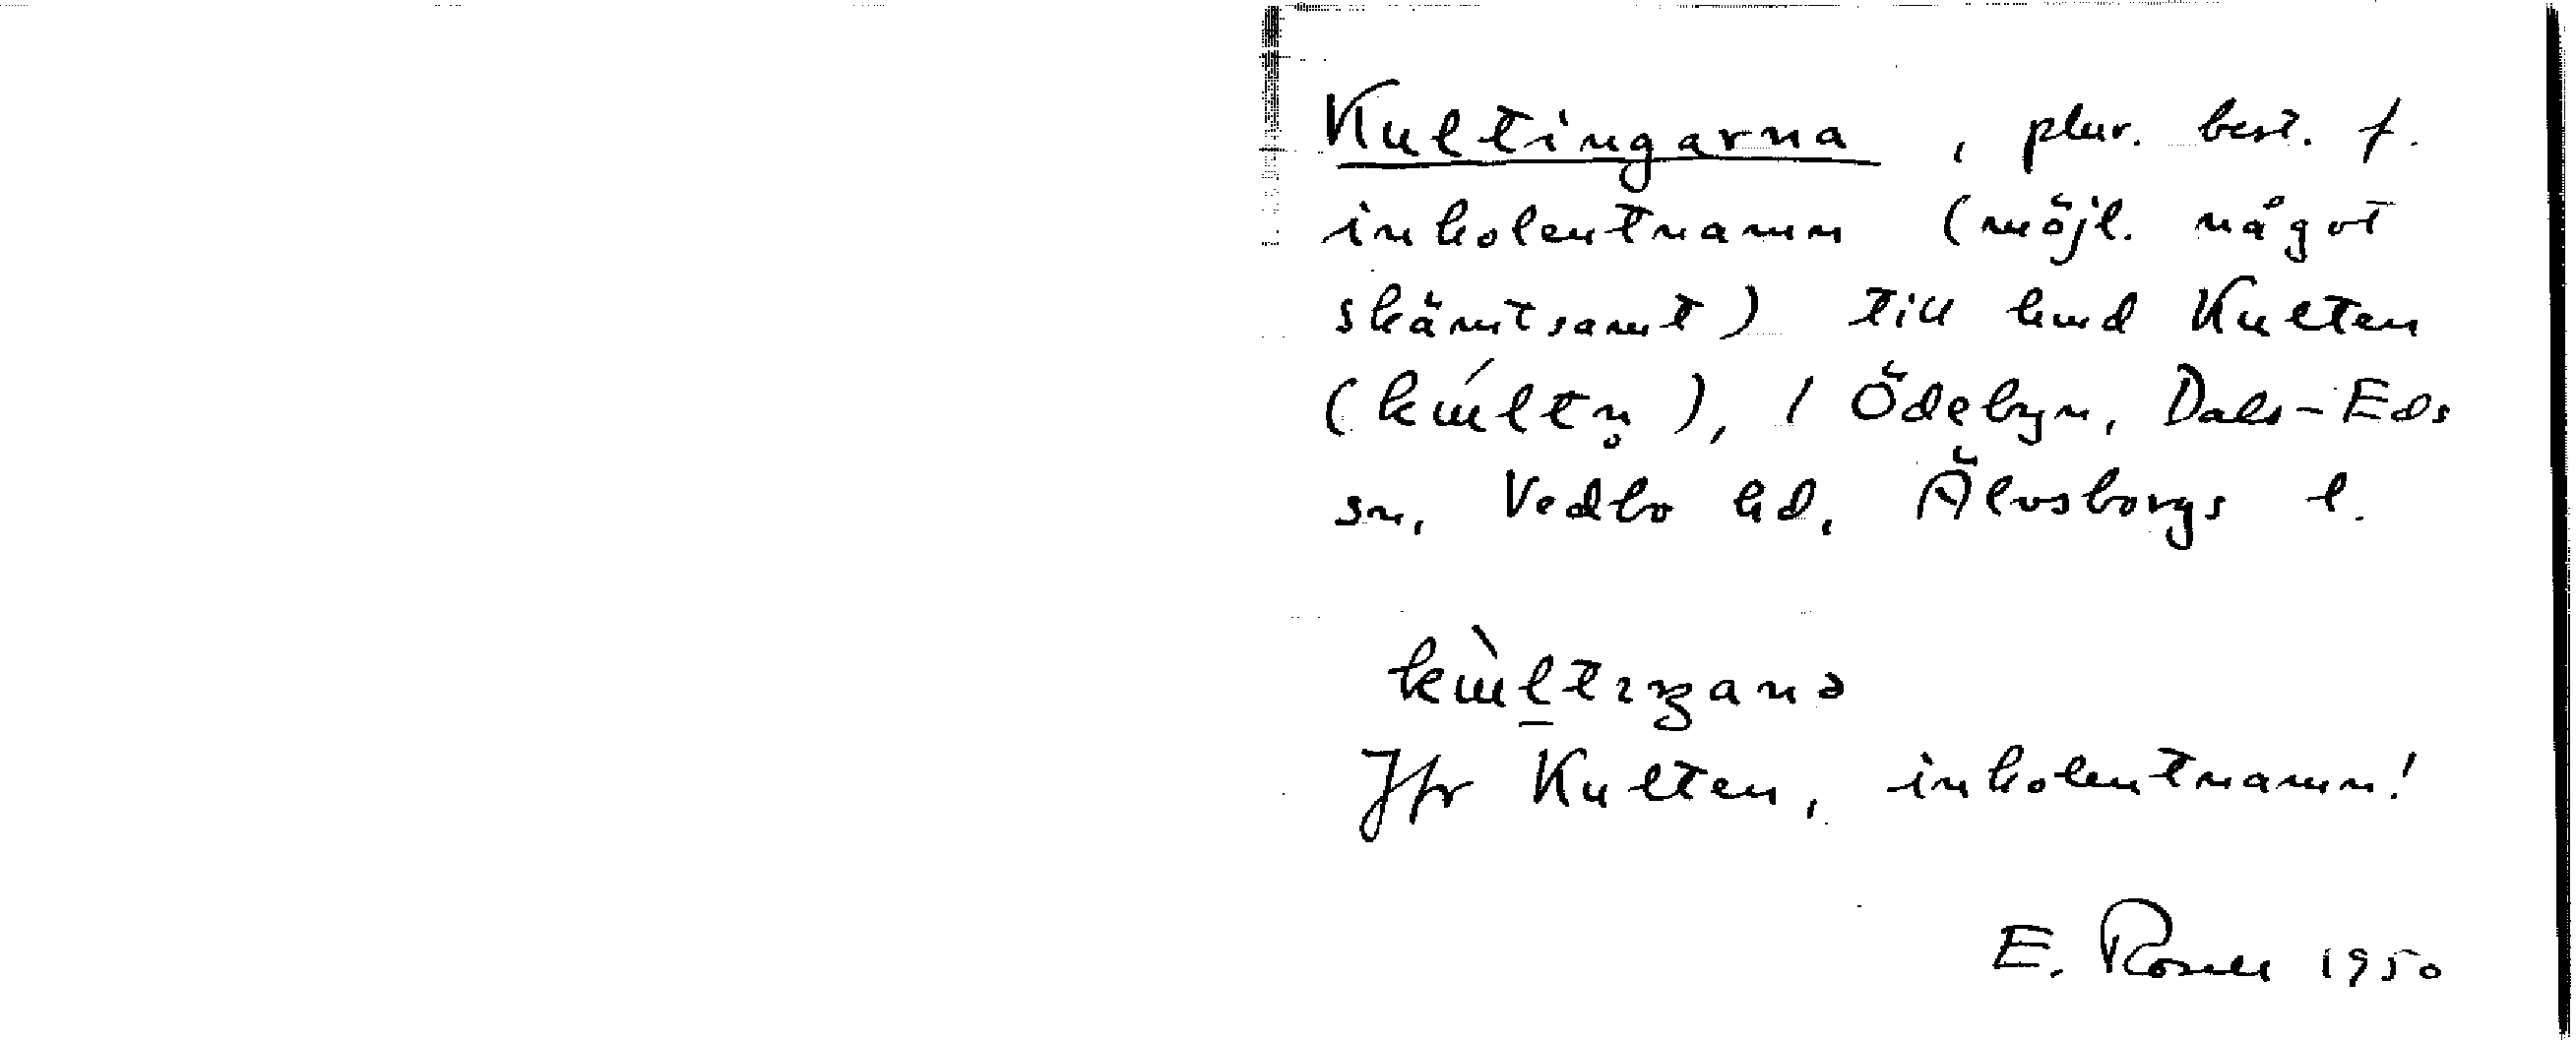 Kultingarna, plur. best. f.
inkolentnamn (möjl. något
skämtsamt) till hmd Kulten
(kɯ́ltn̥), / Ödebyn, Dals-Eds
sn, Vedbo hd, Älvsborgs l.
kɯ̀l̲tɪŋanə
Jfr Kulten, inkolentnamn!
E. Rosell 1950